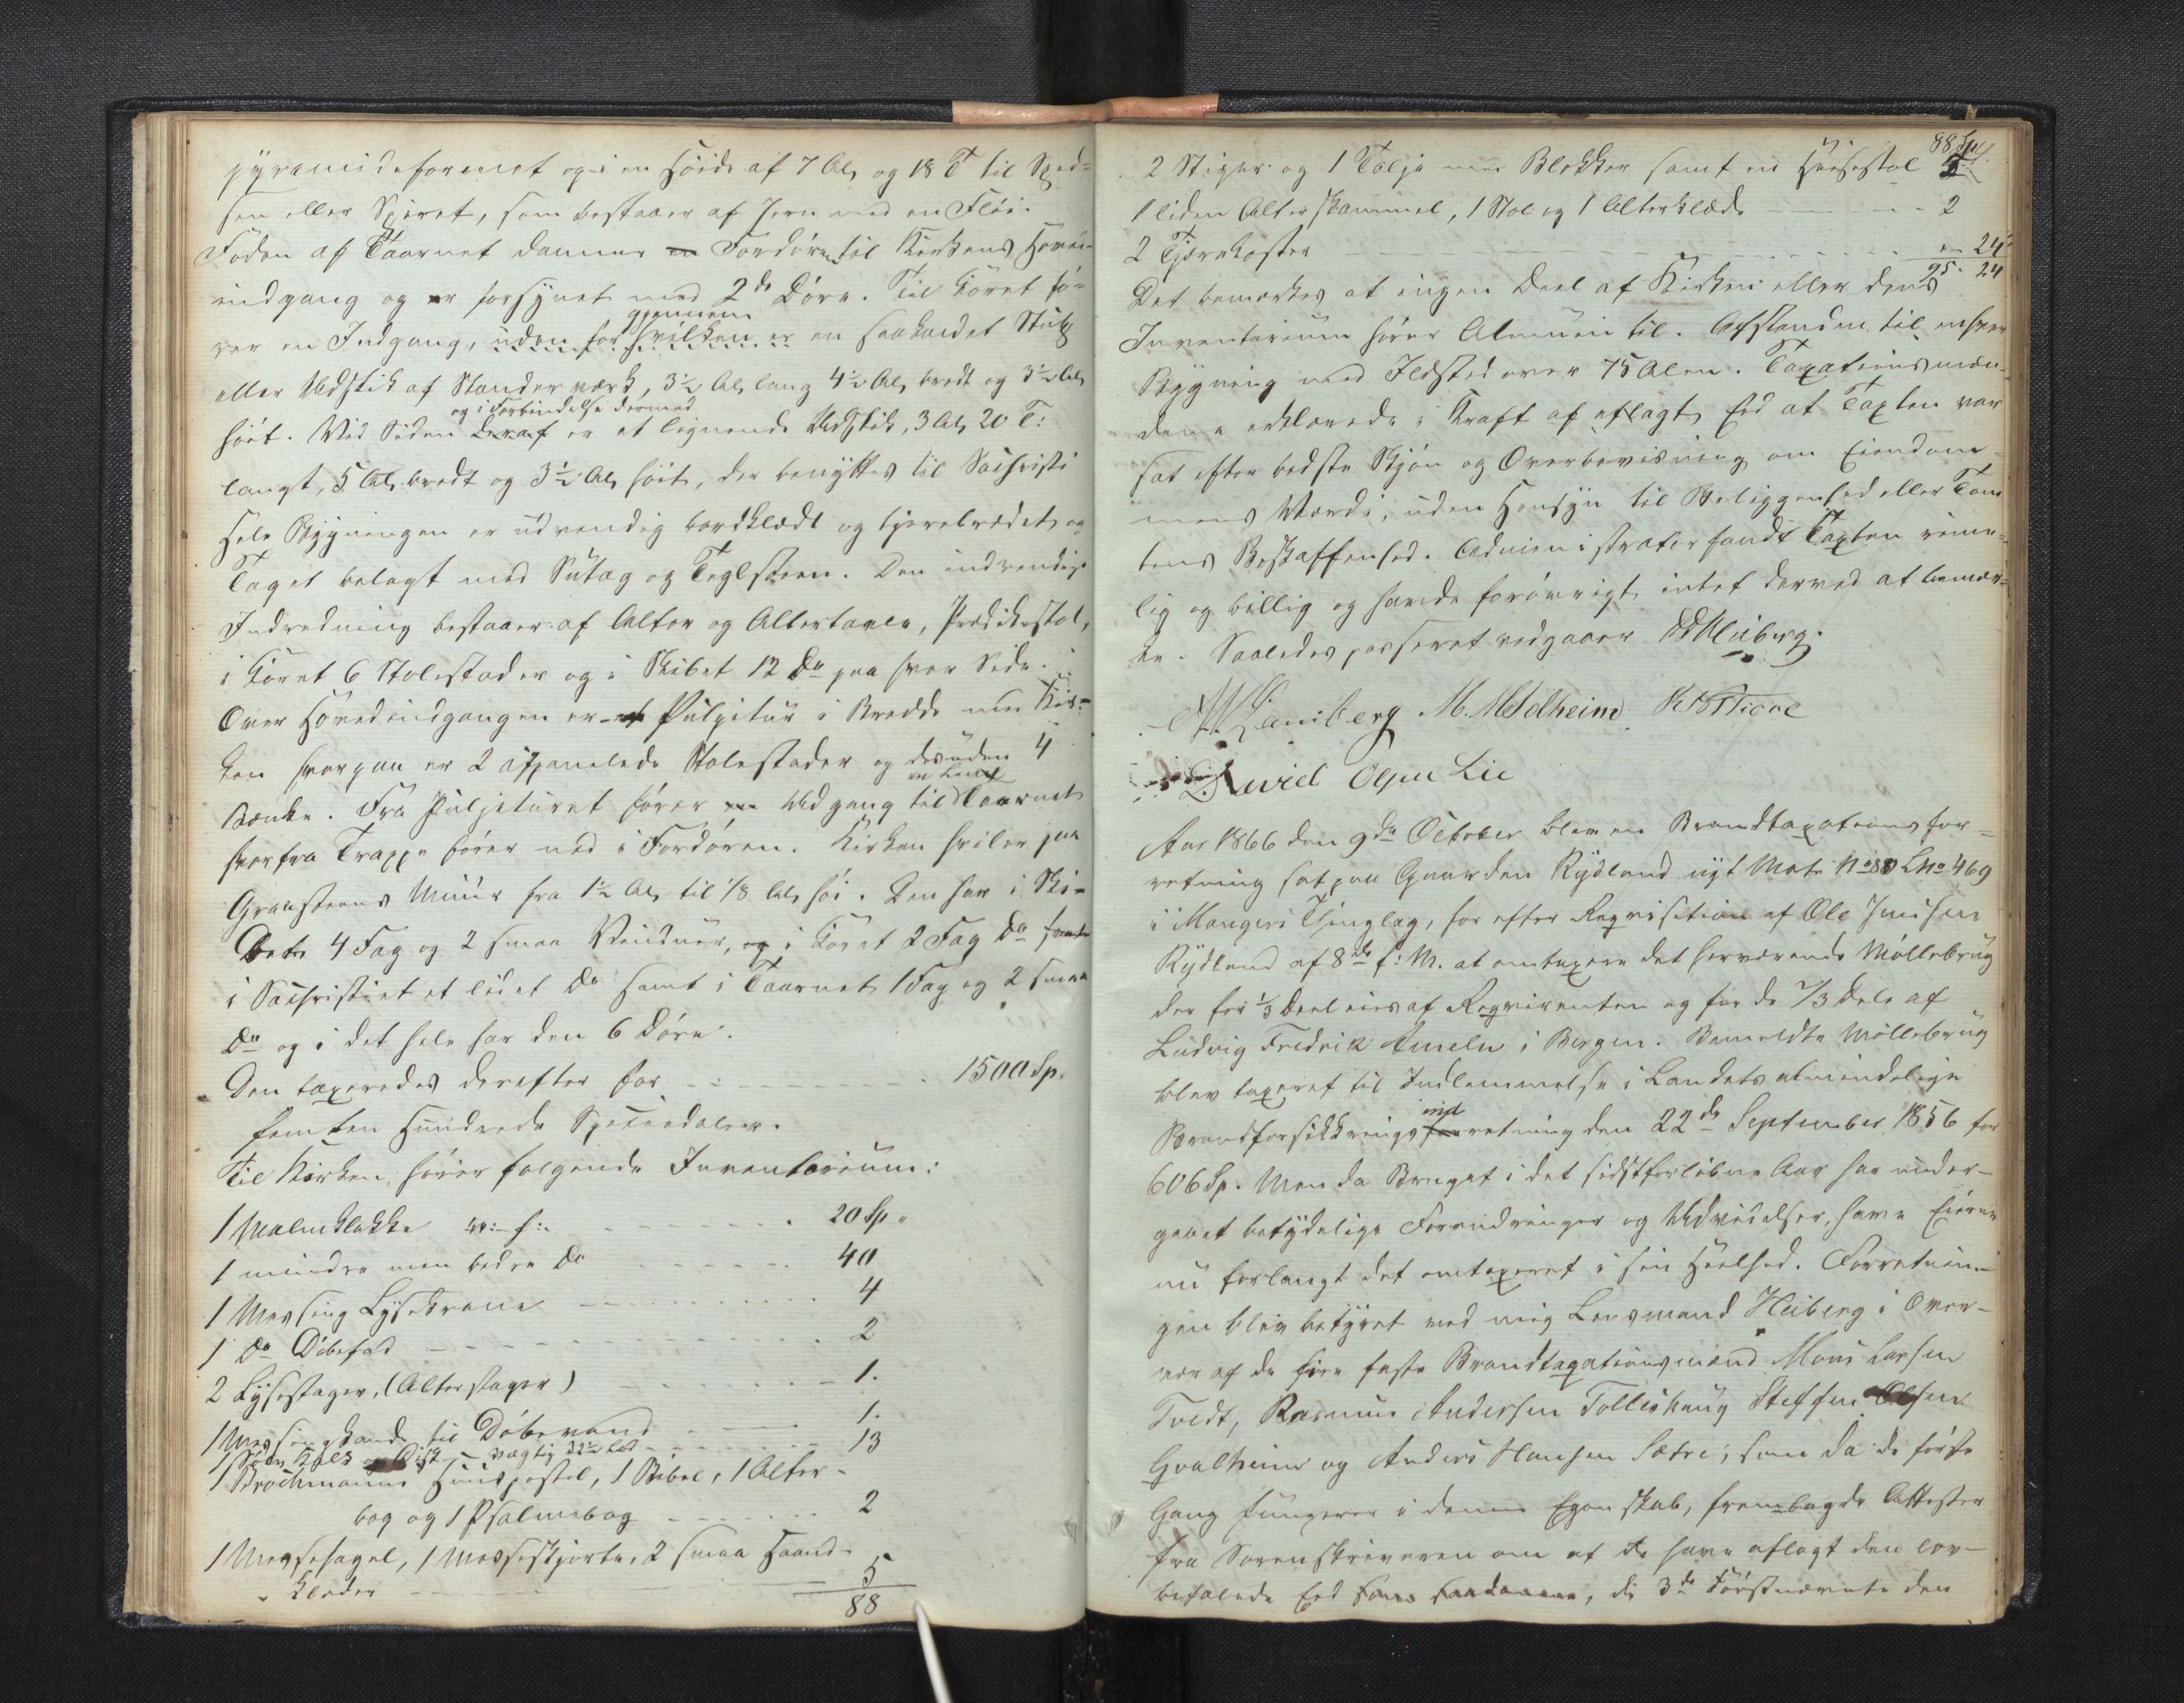 pyramideformet op i en Høide af 7 Al, og 18 T til Spid-
sen eller Spiret, som bestaaer af Jern med en Fløi.
Foden af Taarnet danner en Fordør til Kirkens Hoved-
indgang og er forsynet med 2de Døre. Til Koret fø-
rer en Indgang, uden for gjennem hvilken er en saakaldet Stub
eller Udstik af Standerværk, 3½ Al, lang 4½ Al, bredt og 3½ Al,
høit. Ved Siden deraf og i Forbindelse dermed er et lignende Udstik, 3 Al, 20 T:
langt, 5 Al, bredt og 3½ Al, høit, der benyttes til Sachristi
Hele Bygningen er udvendig bordklædt og tjærebrædet og
Taget belagt med Sutag og Teglsteen. Den indvendige
Indredning bestaaer af Alter og Altertavle, Prædikestol,
i Koret 6 Stolestader og i Skibet 12 Do paa hver Side.
Over Hovedindgangen er et Pulpitur i Bredde med Kir-
ken hvorpaa er 2 afpanelede Stolestader og desuden 4
Bænke. Fra Pulpituret fører en Udgang til Taarnet
hvorfra Trappe fører ned i Fordøren. Kirken hviler paa
Graasteens Muur fra 1½ Al, til 1/8 Al, høi. Den har i Ski-
bet 4 Fag og 2 smaa Vinduer, og i Koret 2 Fag Do
i Sachristiet et lidet Do samt i Taarnet 1 Fag og 2 smaa
Do og i det hele har den 6 Døre.
Den taxeredes derefter for 1500 Sp.
femten Hundrede Speciedaler.
Til Kirken hører følgende Inventarium:
1 Malmklokke 20 Sp
1 mindre men bedre Do 40
1 Messing Lysekrone 4
1 Do Døbefad 2
2 Lysestager, (Alterstager) 1.
1 Messingkande til Døbevand 1.
1 Sølv Kalk og Disk vægtig 13
1 Brochmanns Huuspostil, 1 Bibel, 1 Alter-
bog og 1 Psalmebog 2
1 Messehagel, 1 Messeskjorte, 2 smaa Haand-
klæder 5
88
88 Sp
2 Stiger og 1 Talje med Blokker samt en Heisestol 5
1 liden Alterskammel, 1 Stol og 1 Alterklæde 2
2 Tjærekoster " 24
95. 24
Det bemærkes at ingen Deel af Kirken eller dens
Inventarium hører Almuen til. Afstanden til enhver
Bygning med Ildsted over 75 Alen. Taxationsmæn-
dene erklærede i Kraft af aflagt Eed at Taxten var
sat efter bedste Skjøn og Overbeviisning om Eiendom-
mens Værdi, uden Hensyn til Beliggenhed eller Tom
tens Beskaffenhed. Administrator fandt Taxten rime-
lig og billig og havde forøvrigt intet derved at bemær-
ke. Saaledes passeret vedgaaer Heiberg.
M. Meldheim
Olsen Lie
Aar 1866 den 9de October blev en Brandtaxationsfor-
retning sat paa Gaarden Rydland nyt Matr No 80 LNo 469
i Mangers Thinglag, for efter Reqvisition af Ole Jensen
Rydland af 8de f: M. at omtaxere det herværende Møllebrug
der for 1/3 Deel eies af Reqvirenten og for de 2/3 Dele af
Ludvig Fredrik Ameln i Bergen. Bemeldte Møllebrug
blev taxeret til Indlemmelse i Landets almindelige
Brandforsikkrings ind retning den 22de September 1856 for
606 Sp. Men da Bruget i det sidstforløbne Aar har under-
gaaet betydelige Forandringer og Udvidelser, have Eierne
nu forlangt det omtaxeret i sin Heelhed. Forretnin-
gen blev bestyret ved mig Lensmand Heiberg i Over-
vær af de fire faste Brandtaxationsmænd Mons Larsen
Tvedt, Rasmus Andersen Tolleshaug Steffen Olsen
Qvalheim og Anders Hansen Sætre, som da de første
Gang fungerer i denne Egenskab, fremlagde Attester
fra Sorenskriveren om at de have aflagt den lov-
befalede Eed som saadanne, de 3de Førstnævnte den